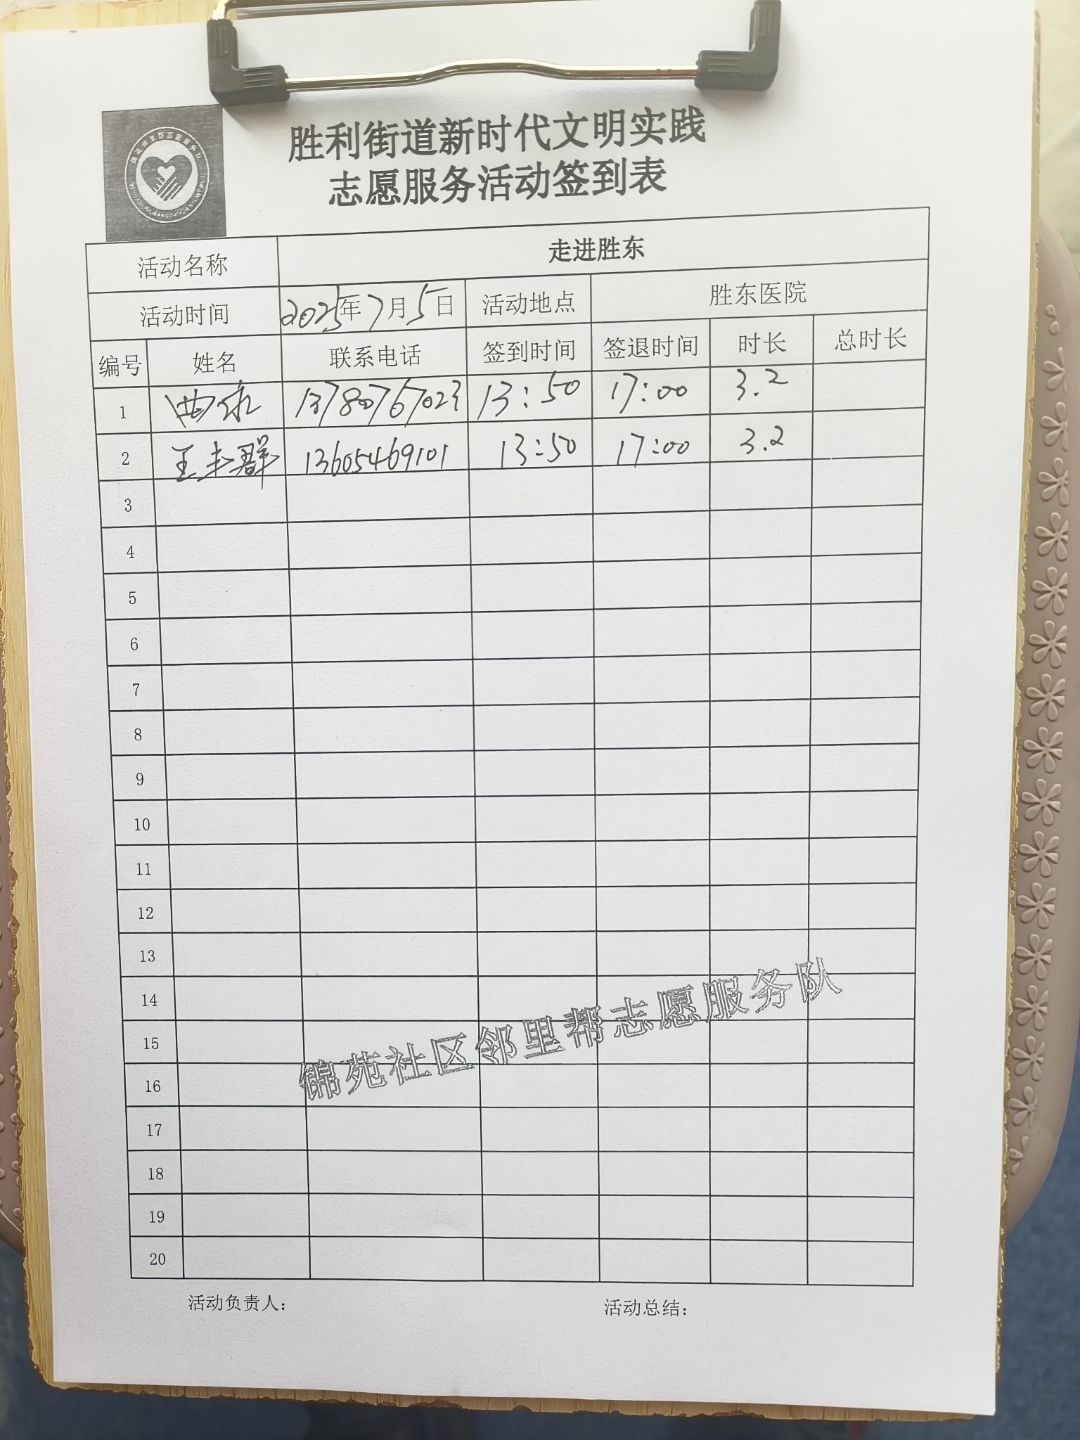 胜利街道新时代文明实践
志愿服务活动签到表
活动名称 走进胜东
活动时间 2025年7月5日 活动地点 胜东医院
编号 姓名 联系电话 签到时间 签退时间 时长 总时长
1 13780767023 13:50 17:00 3.2
2 王丰群 13605469101 13:50 17:00 3.2
3
4
5
6
7
8
9
10
11
12
13
14
15
16
17
18
19
20
锦苑社区邻里帮志愿服务队
活动负责人: 活动总结: